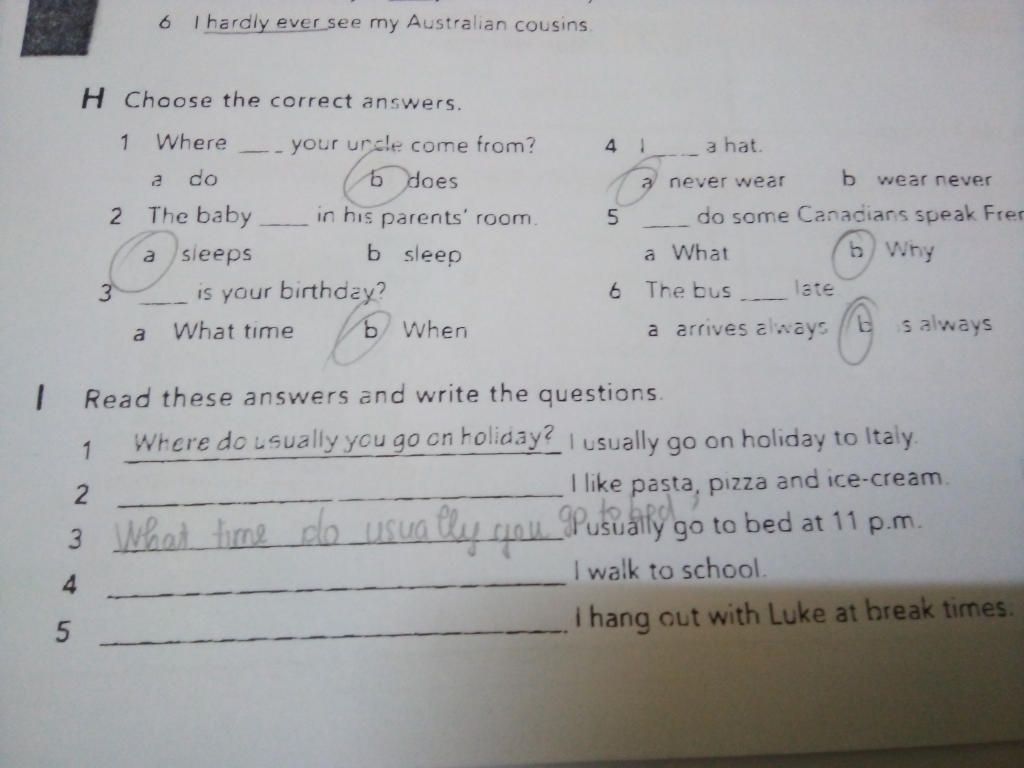 6 I hardly ever see my Australian cousins.
H Choose the correct answers.
1 Where ____ your uncle come from?
a do b does
2 The baby ____ in his parents' room.
a sleeps b sleep
3 ____ is your birthday?
a What time b When
4 I ____ a hat.
a never wear b wear never
5 ____ do some Canadians speak
a What b Why
6 The bus ____ late
a arrives always b is always
I Read these answers and write the questions.
1 Where do usually you go on holiday? I usually go on holiday to Italy.
2 ____ I like pasta, pizza and ice-cream.
3 What time do usually you go to bed? I usually go to bed at 11 p.m.
4 ____ I walk to school.
5 ____ I hang out with Luke at break times.